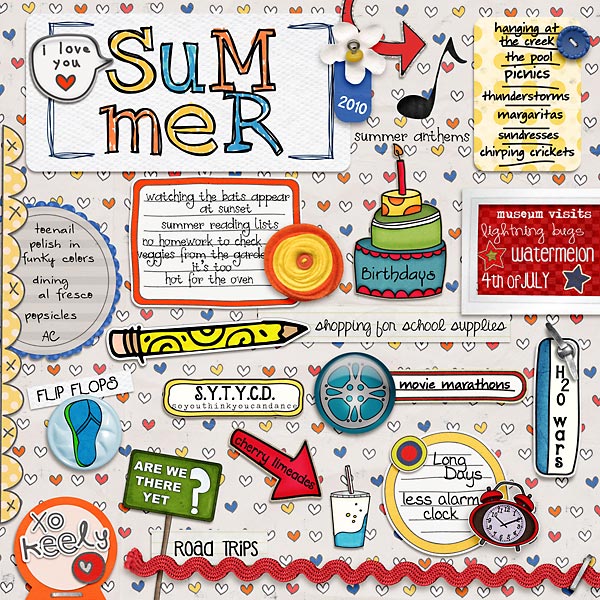 i love
you
SuM
meR
2010
summer anthems
hanging at
the creek
the pool
picnics
thunderstorms
margaritas
sundresses
chirping crickets
watching the bats appear
at sunset
summer reading lists
no homework to check
veggies from the garde
it's too
hot for the oven
Birthdays
museum visits
lightning bugs
watermelon
4th of JULY
toenail
polish in
funky colors
dining
al fresco
popsicles
AC
shopping for school supplies
FLIP FLOPS
S.Y.T.Y.C.D.
soyouthinkyoucandance
movie marathons
H2O WARS
ARE WE
THERE
YET
?
cherry limeades
Long
Days
less alarm
clock
XO
Keely
ROAD TRIPS